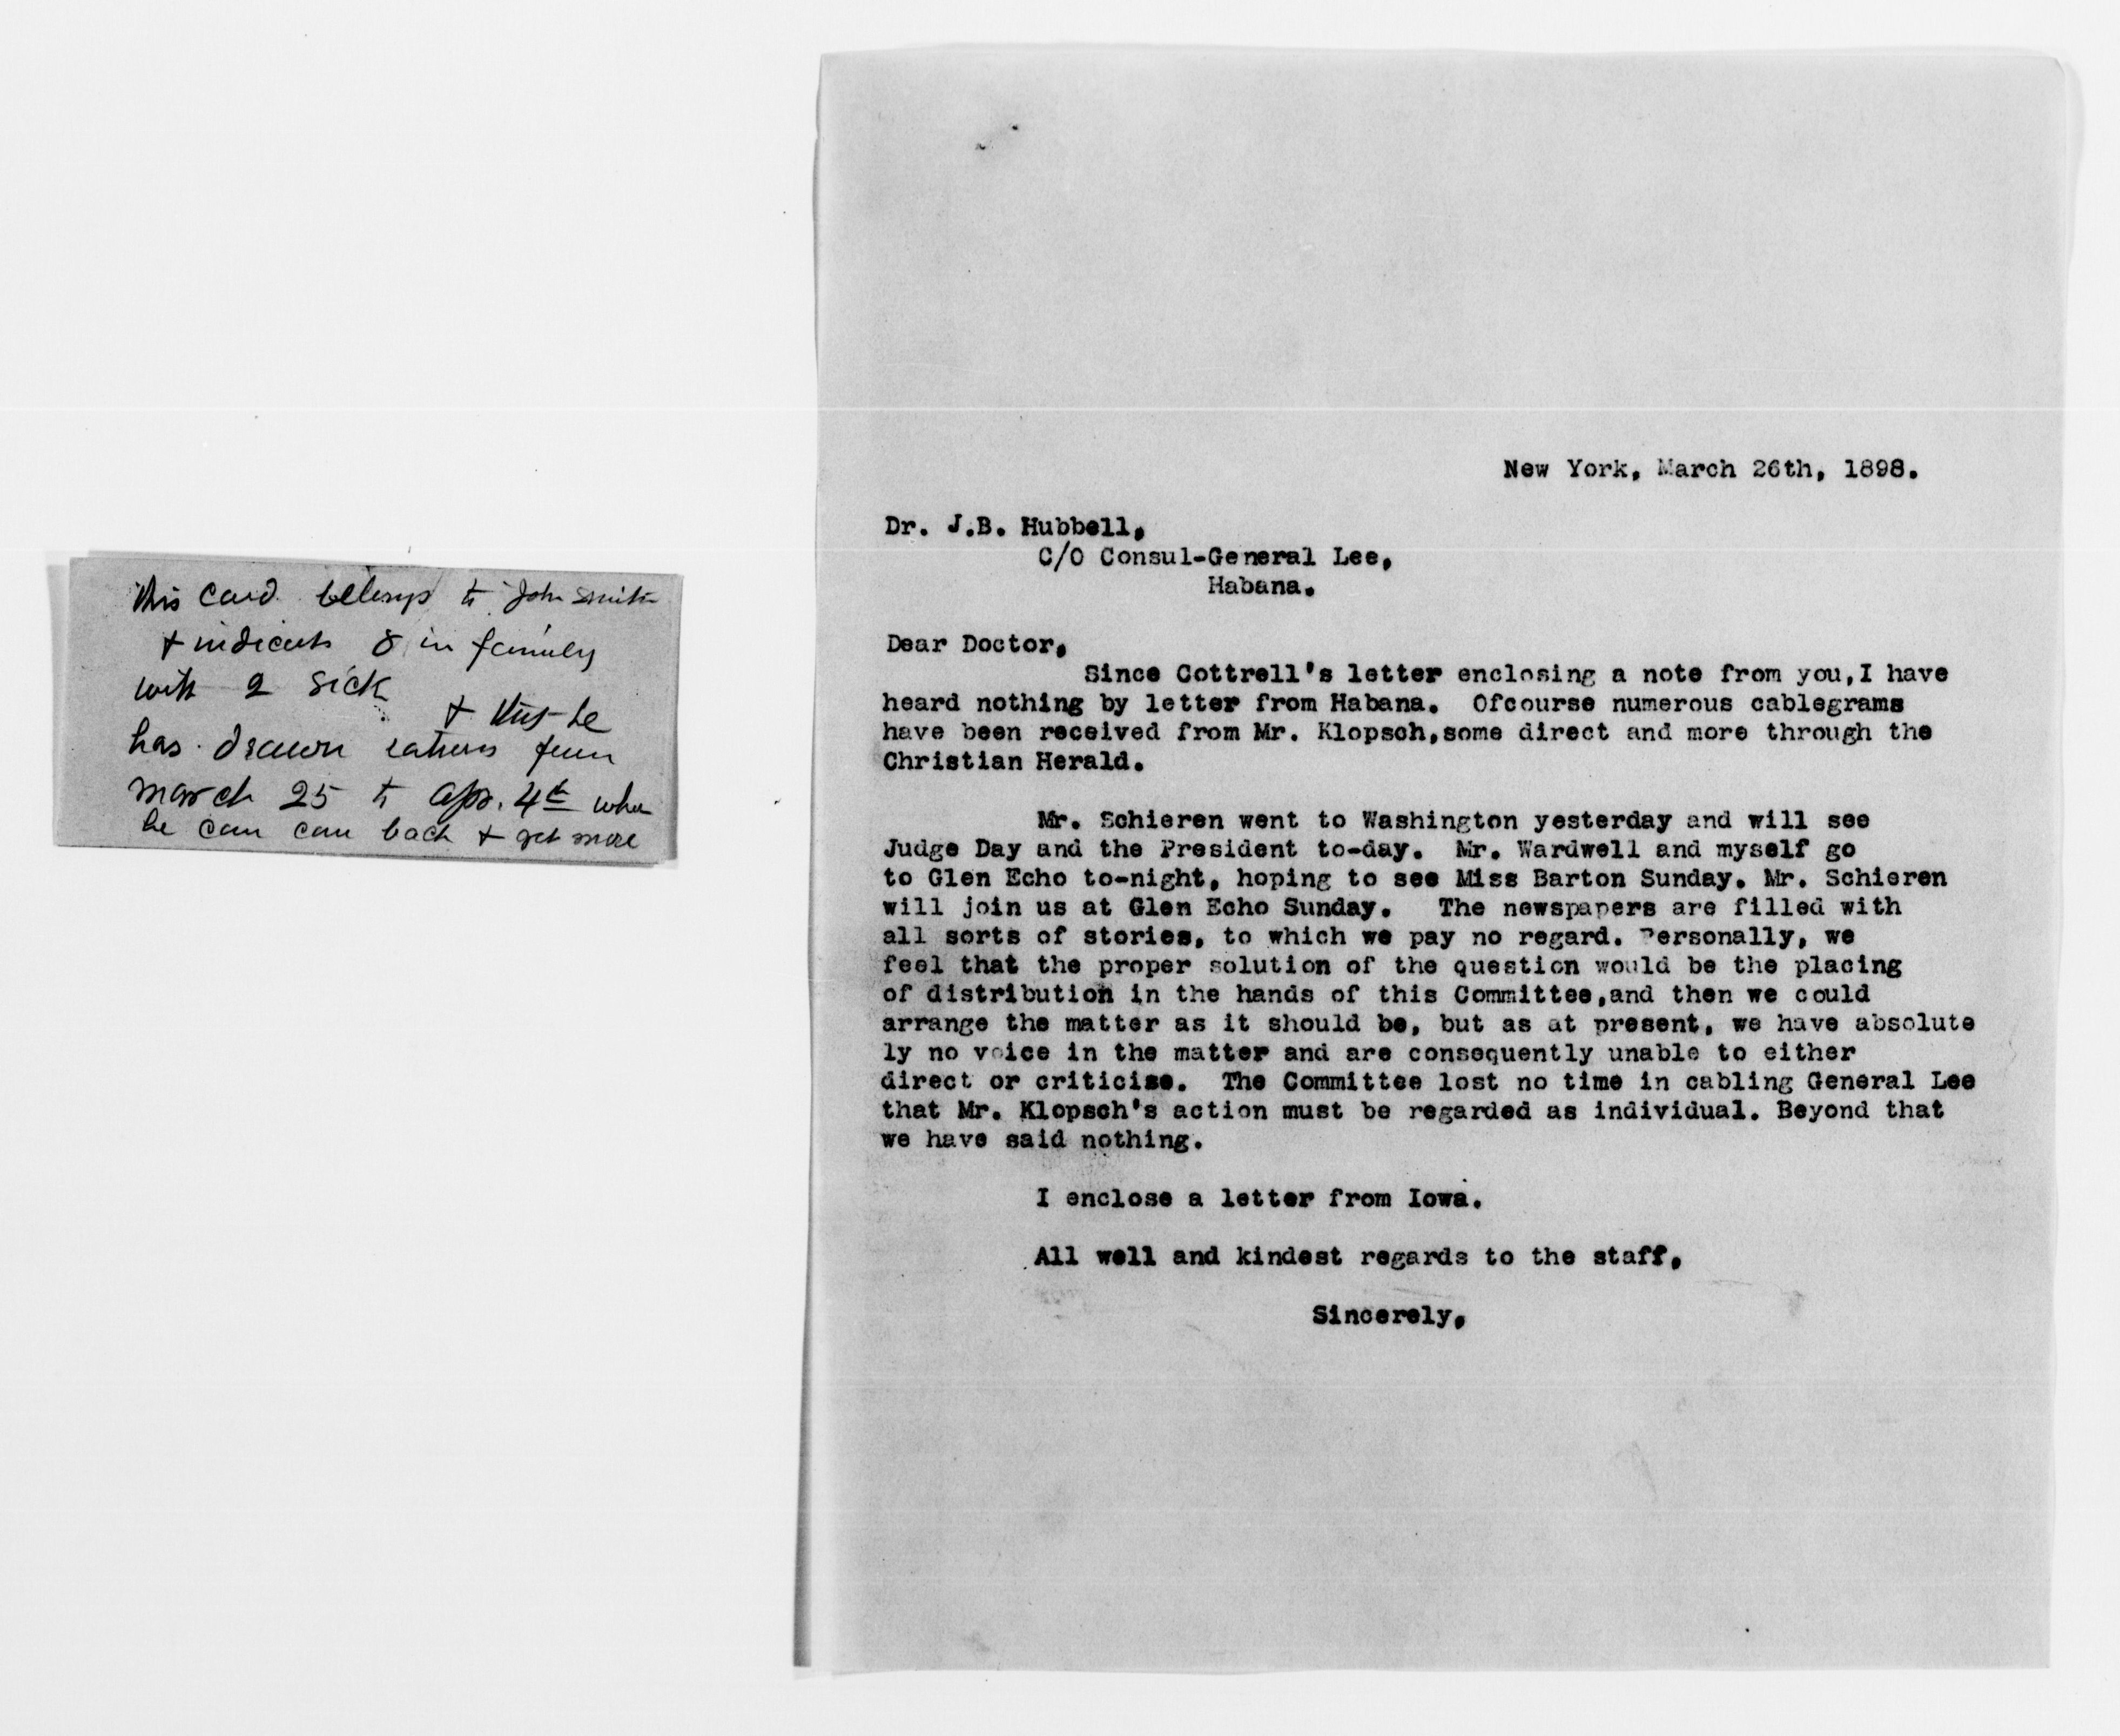 this card belongs to John Smith
+ indicates 8 in family
with 2 sick
+ that he
has drawn rations from
march 25 to Apr. 4th when
he can com back + get more
New York, March 26th, 1898.
Dr. J.B. Hubbell,
C/O Consul-General Lee,
Habana.
Dear Doctor,
Since Cottrell's letter enclosing a note from you,I have
heard nothing by letter from Habana. Ofcourse numerous cablegrams
have been received from Mr. Klopsch,some direct and more through the
Christian Herald.
Mr. Schieren went to Washington yesterday and will see
Judge Day and the President to-day. Mr. Wardwell and myself go
to Glen Echo to-night, hoping to see Miss Barton Sunday. Mr. Schieren
will join us at Glen Echo Sunday. The newspapers are filled with
all sorts of stories, to which we pay no regard. Personally, we
feel that the proper solution of the question would be the placing
of distribution in the hands of this Committee,and then we could
arrange the matter as it should be, but as at present, we have absolute
ly no voice in the matter and are consequently unable to either
direct or criticise. The Committee lost no time in cabling General Lee
that Mr. Klopsch's action must be regarded as individual. Beyond that
we have said nothing.
I enclose a letter from Iowa.
All well and kindest regards to the staff,
Sincerely,